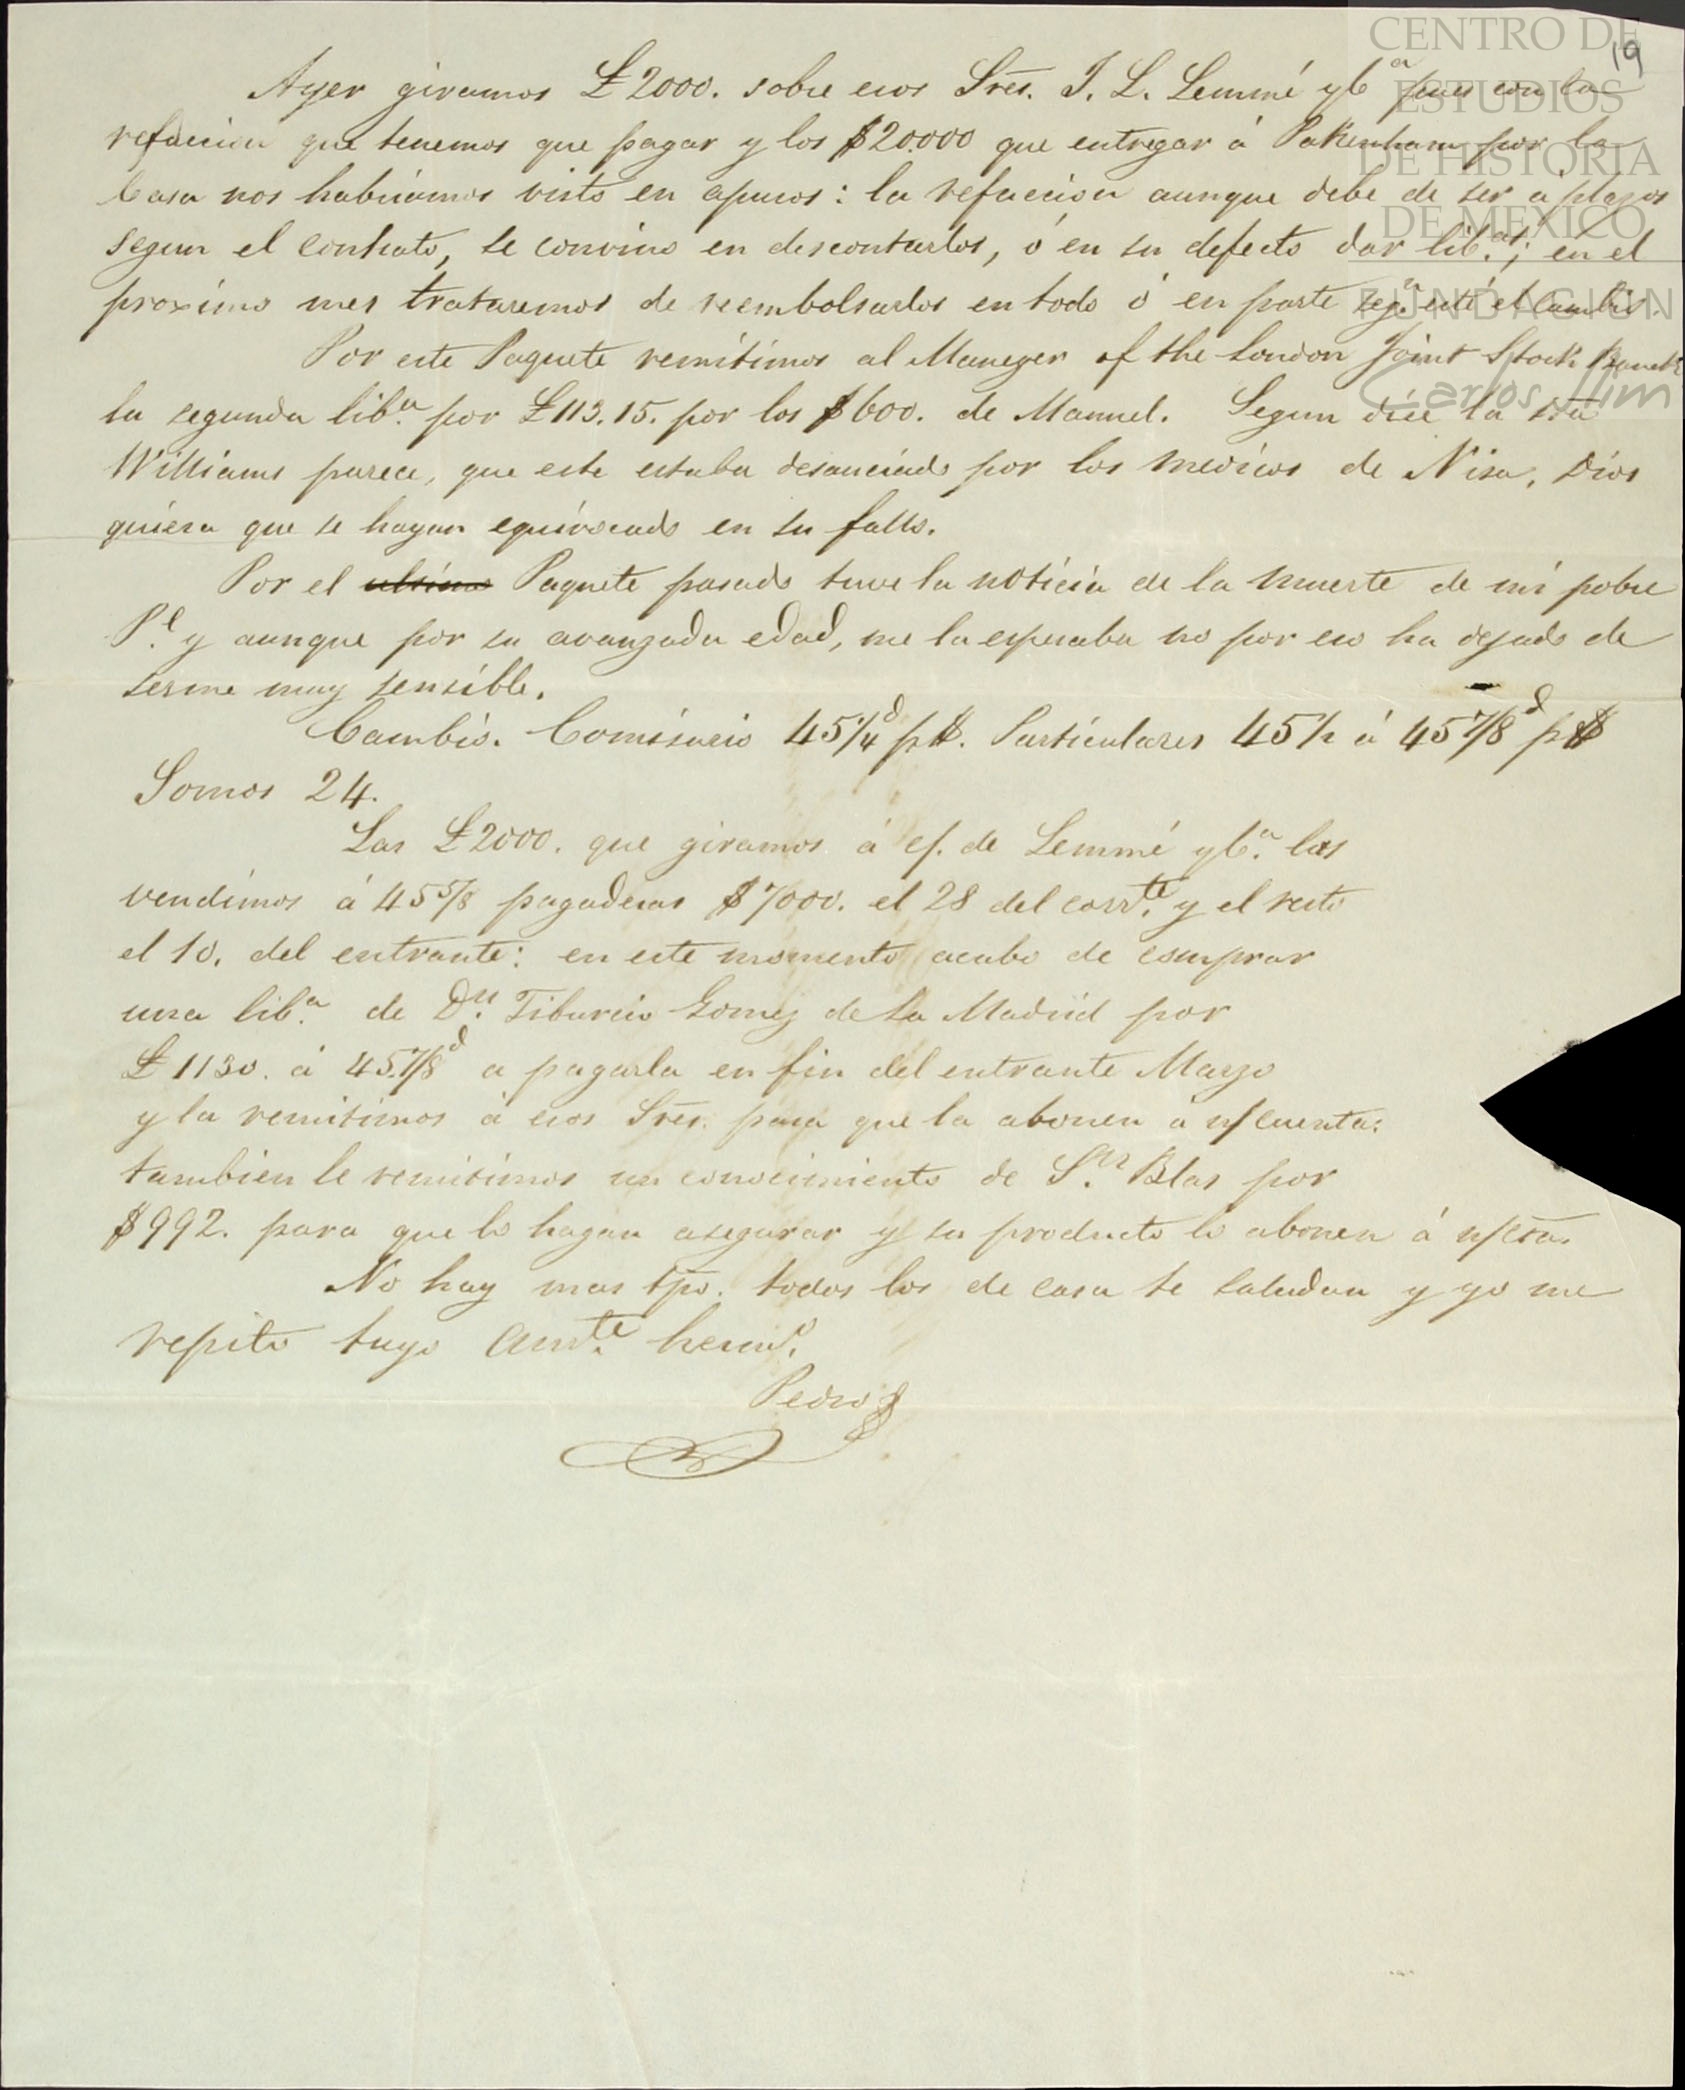 CENTRO DE
ESTUDIOS
DE HISTORIA
DE MEXICO
FUNDACION
Carlos Slim
19
Ayer giramos £2000. sobre esos Sres. I. L. Lemmé yCª pues con la
refaccion que tenemos que pagar y los $20.000 que entregar á Pakenham por la
Casa nos habriamos visto en apuros: la refaccion aunque debe de ser a plazos
segun el contrato, se convino en descontarlos, ó en su defecto dar lib.as; en el
proximo mes trataremos de reembolsarlos en todo ó en parte seg.n esté el cambio.
Por este Paquete remitimos al Maneger of the London Joint Stock Banck
la segunda lib.a por £113.15. por los $600. de Manuel. Segun dice la Sra
Williams parece, que este estaba desauciado por los medicos de Nisa, Dios
quiera que se hayan equivocado en su fallo.
Por el ultimo Paquete pasado tuve la noticia de la muerte de mi pobre
P.e y aunque por su avanzada edad, me la esperaba no por eso ha dejado de
serme muy sensible.
Cambio. Comisario 45 1/4 d p$. Particulares 45 1/2 á 45 7/8 d p$
Somos 24.
Las £2000. que giramos á c/. de Lemmé yC.a las
vendimos á 45 5/8 pagaderas $7000. el 28 del corr.te y el resto
el 10. del entrante: en este momento acabo de comprar
una lib.a de D.n Tiburcio Gomez de La Madrid por
£1130. á 45.7/8 d a pagarla en fin del entrante Marzo
y la remitimos á esos Sres. para que la abonen á n/cuenta:
tambien le remitimos un conocimiento de S.n Blas por
$992. para que lo hagan asegurar y su producto lo abonen á n/cta.
No hay mas tpo. todos los de casa te saludan y yo me
repito tuyo am.te herm.o
Pedro